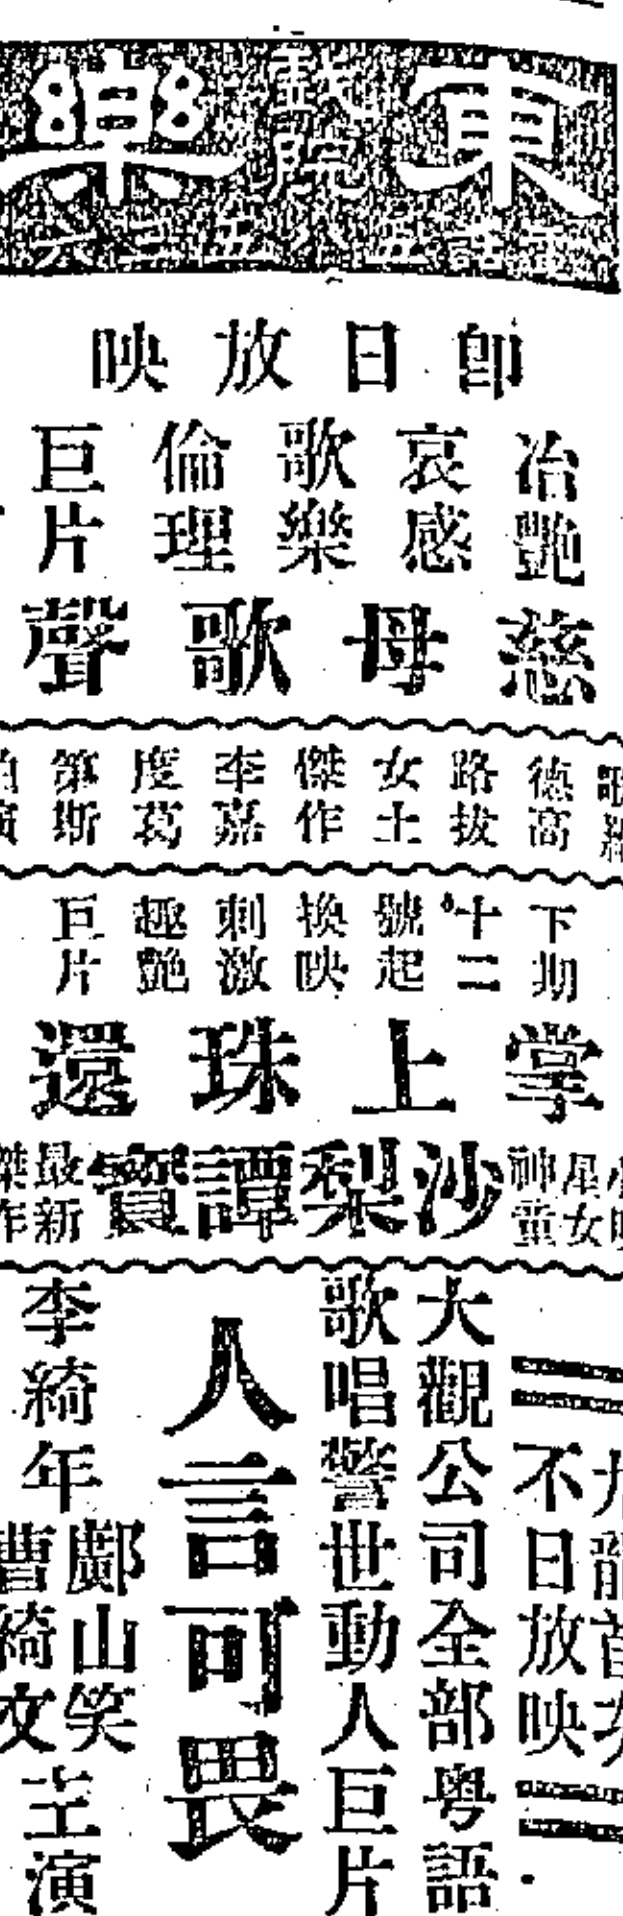 東樂戲院
電話五八五三六
即日放映
冶艷哀感歌樂倫理巨片
慈母歌聲
德高路拔女士傑作李嘉度葛第斯
下期十二號起換映刺激趣艷巨片
掌上珠還
神童
沙梨譚寶
最新傑作
不日放映
大觀公司全部粤語
歌唱警世動人巨片
人言可畏
李綺年
鄺山笑
曹綺文
主演